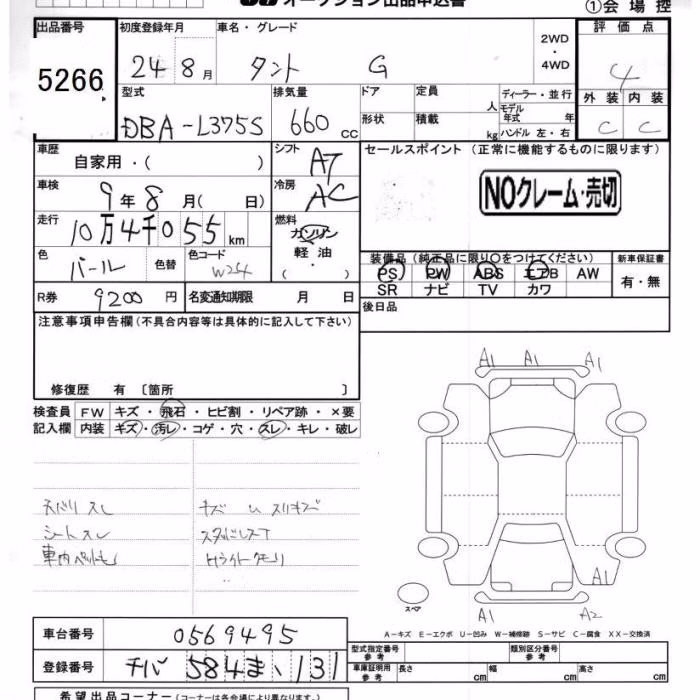 オークション出品申込書
①会場控
出品番号
5266
初度登録年月
24 8月
車名・グレード
タント G
2WD
・
4WD
評価点
4
外装 内装
C C
型式
DBA-L375S
排気量
660 cc
ドア
形状
定員 人
積載 kg
ディーラー・並行
モデル
年式 年
ハンドル 左・右
車歴
自家用・( )
シフト
AT
車検
9年8月( 日)
冷房
AC
走行
10万4千055km
燃料
ガソリン
軽油
( ・ )
色
パール
色替
色コード
W24
R券
9200円
名変通知期限 月 日
セールスポイント (正常に機能するものに限ります)
NOクレーム・売切
装備品 (純正品に限り○をつけてください)
PS PW ABS エアB AW
SR ナビ TV カワ
新車保証書
有・無
後日品
注意事項申告欄(不具合内容等は具体的に記入して下さい)
修復歴 有 〔箇所 〕
検査員
記入欄
FW キズ・飛石・ヒビ割・リペア跡・×要
内装 キズ・汚レ・コゲ・穴・スレ・キレ・破レ
天バリ スレ
シートスレ
車内ペット毛
スタッドレス
Hライトクモリ
A1 A1 A1
A1
A1 A2
スペア
A-キズ E-エクボ U-凹み W-補修跡 S-サビ C-腐食 XX-交換済
車台番号
0569495
登録番号
チバ 584 ま 131
型式指定番号
参考
類別区分番号
参考
車庫証明用
参考
長さ cm
幅 cm
高さ cm
希望出品コーナー (コーナーは各会場により異なります。)